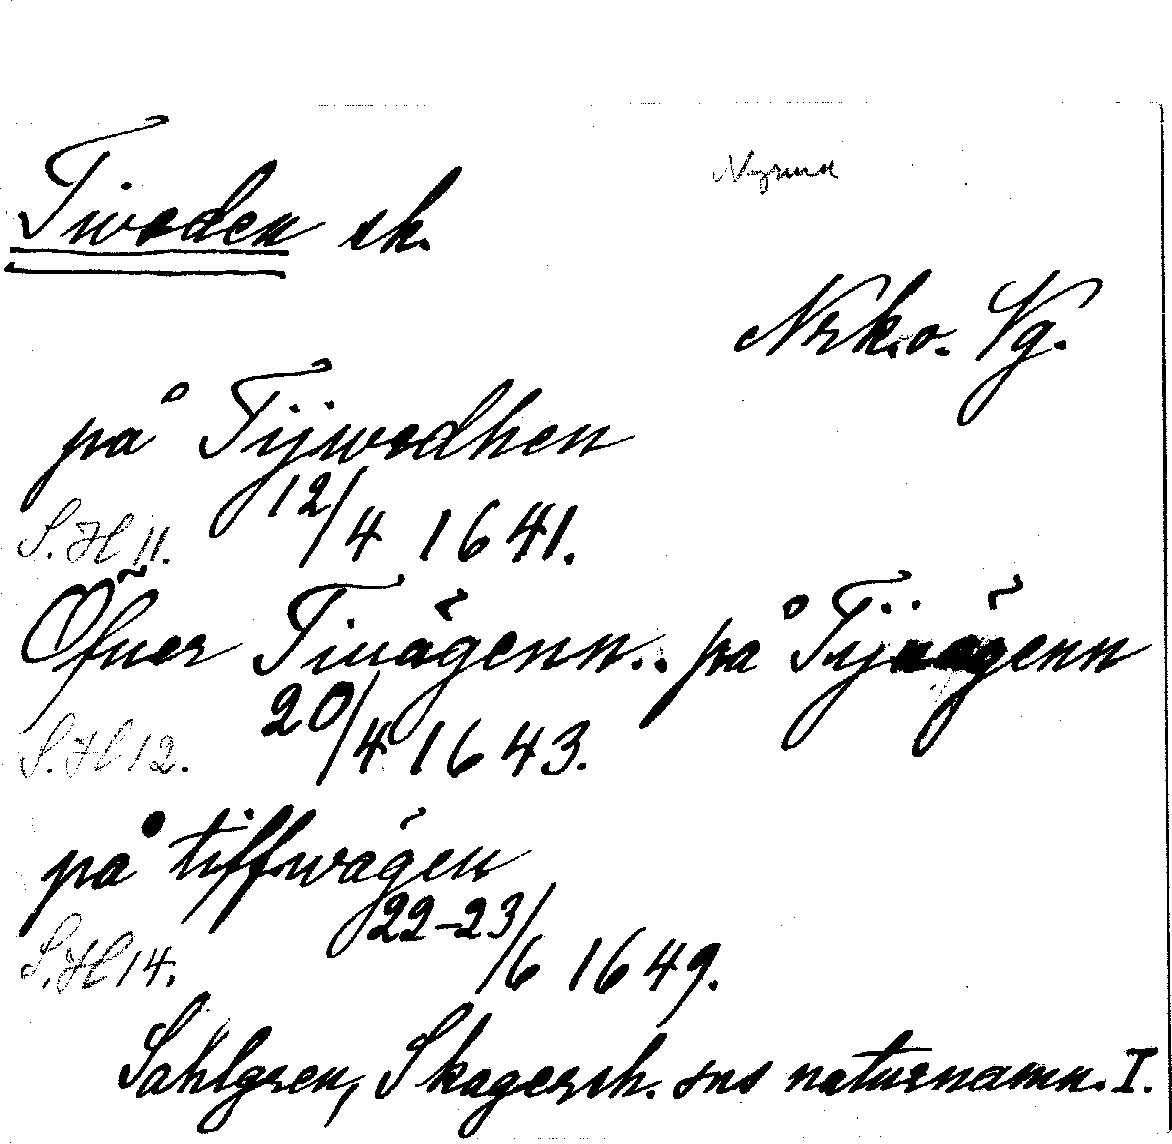 Tiveden sk.
Nrk. o. Vg.
på Tijwedhen
S.H 11. 12/4 1641.
Öfuer Tiuägenn.. på Tijuägenn
S.H 12. 20/4 1643.
på tiffwägen
S.H 14. 22-23/6 1649.
Sahlgren, Skagersh. sns naturnamn. I.